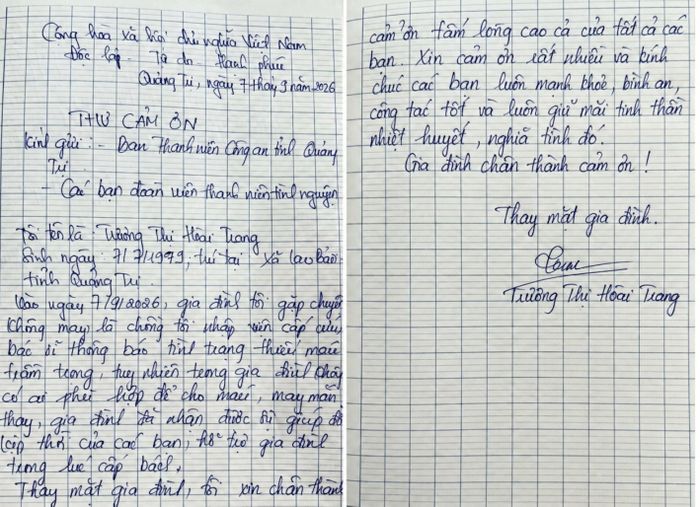 Cộng hòa xã hội chủ nghĩa Việt Nam
Độc lập - Tự do - Hạnh phúc
Quảng Trị, ngày 7 tháng 9 năm 2026
THƯ CẢM ƠN
Kính gửi: - Ban Thanh niên Công an tỉnh Quảng
Trị.
- Các bạn đoàn viên thanh niên tình nguyện
Tôi tên là: Trương Thị Hoài Trang
Sinh ngày: 7/7/1979, trú tại xã Lao Bảo,
tỉnh Quảng Trị.
Vào ngày 7/9/2026, gia đình tôi gặp chuyện
không may là chồng tôi nhập viện cấp cứu,
bác sĩ thông báo tình trạng thiếu máu
trầm trọng, tuy nhiên trong gia đình không
có ai phù hợp để cho máu, may mắn
thay, gia đình đã nhận được sự giúp đỡ
kịp thời của các bạn, hỗ trợ gia đình
trong lúc cấp bách.
Thay mặt gia đình, tôi xin chân thành
cảm ơn tấm lòng cao cả của tất cả các
bạn. Xin cảm ơn rất nhiều và kính
chúc các bạn luôn mạnh khoẻ, bình an,
công tác tốt và luôn giữ mãi tinh thần
nhiệt huyết, nghĩa tình đó.
Gia đình chân thành cảm ơn!
Thay mặt gia đình.
Trương Thị Hoài Trang